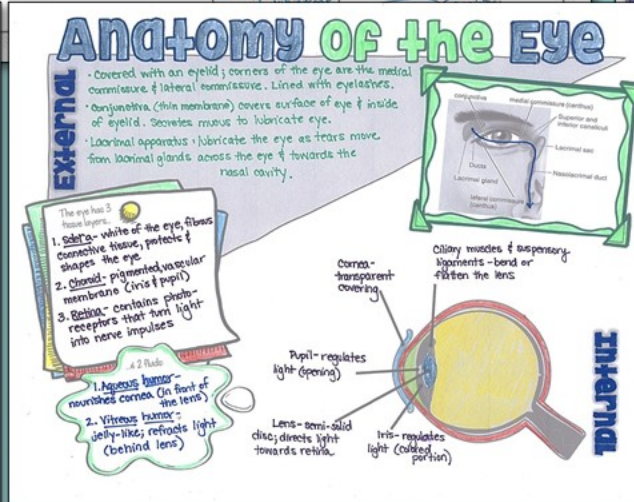 Anatomy of the Eye
External
· Covered with an eyelid; corners of the eye are the medial
commissure & lateral commissure. Lined with eyelashes.
· Conjunctiva (thin membrane) covers surface of eye & inside
of eyelid. Secretes mucus to lubricate eye.
· Lacrimal apparatus: lubricate the eye as tears move
from lacrimal glands across the eye & towards the
nasal cavity.
conjunctiva
medial commissure (canthus)
Superior and
inferior canaliculi
Lacrimal sac
Nasolacrimal duct
Ducts
Lacrimal gland
lateral commissure
(canthus)
The eye has 3
tissue layers...
1. Sclera- white of the eye, fibrous
connective tissue, protects &
shapes the eye
2. Choroid- pigmented, vascular
membrane (iris & pupil)
3. Retina- contains photo-
receptors that turn light
into nerve impulses
...& 2 fluids
1. Aqueous humor-
nourishes cornea (in front of
the lens)
2. Vitreous humor-
jelly-like; refracts light
(behind lens)
Cornea-
transparent
covering
Ciliary muscles & suspensory
ligaments- bend or
flatten the lens
Pupil- regulates
light (opening)
Lens- semi-solid
disc; directs light
towards retina
Iris- regulates
light (colored
portion)
Internal